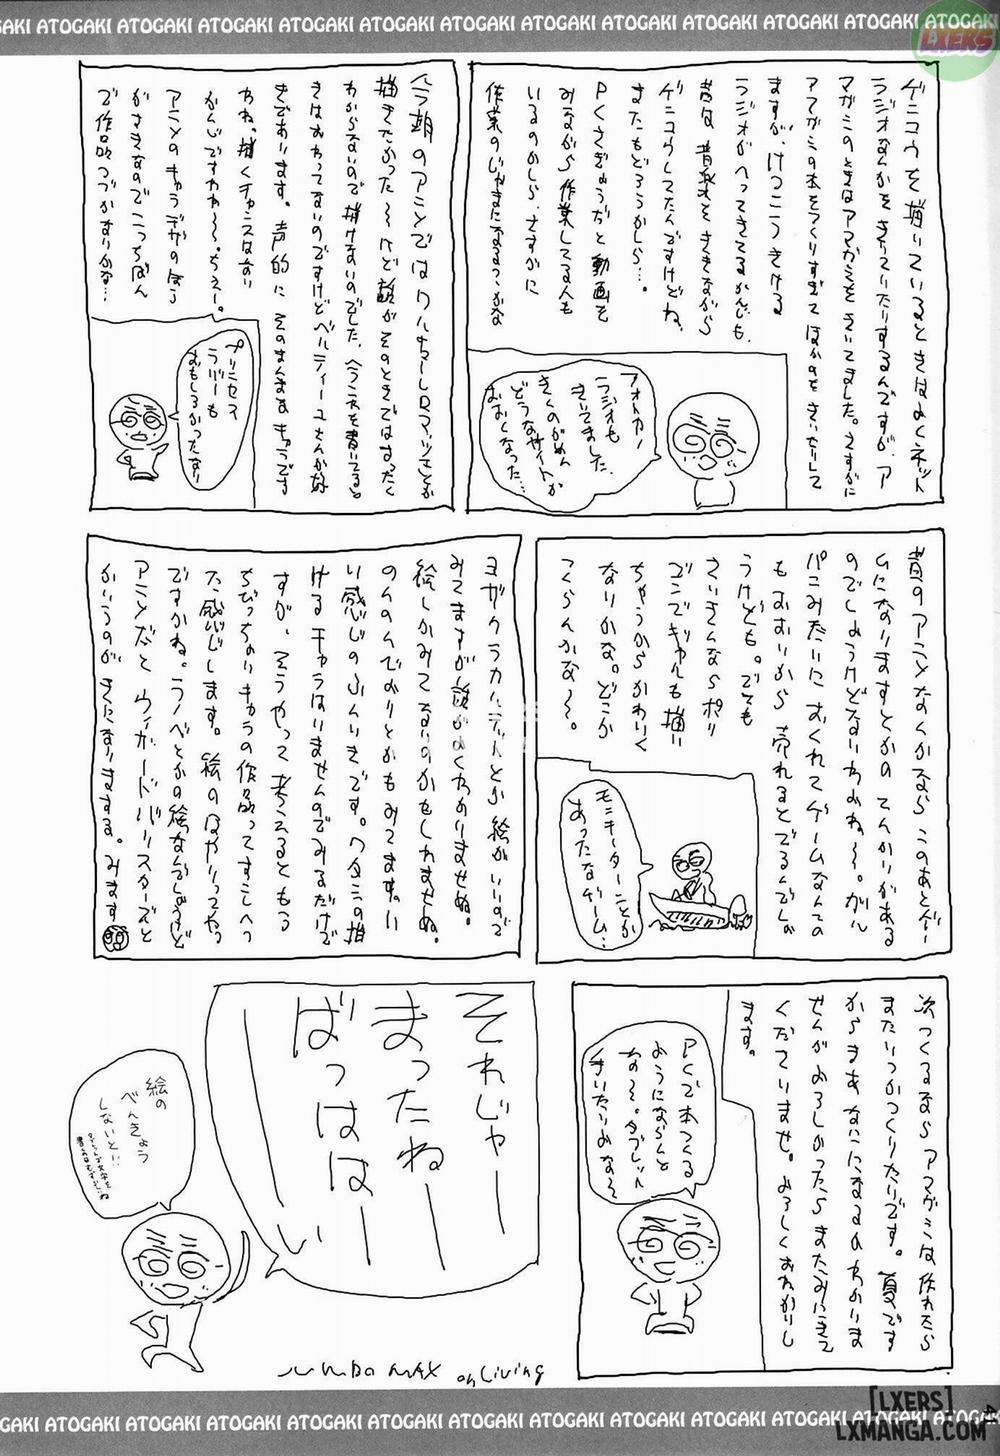 ATOGAKI ATOGAKI ATOGAKI ATOGAKI ATOGAKI ATOGAKI ATOGAKI ATOGAKI ATOGAKI ATOGAKI
LXERS
ゲンコウを描いているときはよくネット
ラジオなんかをきいていたりするんですが、ア
マガミのときはアマガミをきいてました。さすがに
アマガミの本をつくりすぎてほかのをきいたりして
ますが、けっこうきける
ラジオがへってきてるかんじも、
昔は音楽をききながら
ゲンコウしてたんですけどね、
またもどろうかしら…。
PCさぎょうだと動画を
みながら作業してる人も
いるのかしら、さすがに
作業のじゃまになるっかな
フォトカノ
ラジオも
きいてました、
きくのがめん
どうなサイトが
おおくなった…
今期のアニメでは
描きたかった〜けど話がそのときではまったく
わからないので描けないのでした、
きはおわってないのですけどベルティーユさんが好
きであります。声的にそのまんまなキャラです
わね。描くチャンスはない
かんじですわ〜。ちぇー。
アニメのキャラデザのほう
がすきなのでこっちばん
で作品つづかないかな…
プリンセス
ラバーも
おもしろかったなぁ
昔のアニメなんかならこのあとゲー
ムになりますとかのてんかいがある
のでしょうけどないわよね〜。ガル
パンみたいにおくれてゲームなんての
もあるから売れるとでるんでしょ
うけども。でも
さいきんならポリ
ゴンでギャルも描い
ちゃうからかわいく
なりかな。どこか
つくらんかな〜。
モニターことか
あったなゲーム…
ヨルムンガンドとか絵がいいので
みてますが話がよくわかりませぬ。
絵しかみてないのかもしれませぬ。
のんのんびよりとかもみてます。い
い感じのふんいきです。ワタシの描
けるキャラはいませんのでみるだけで
すが、そうやって考えるともう
ちびっちゃいキャラの作品ってすこしへっ
た感じします。絵のはやりってやつ
ですかね。ラノベとかの絵なんでしょうけど
アニメだとウィザードバリスターズんと
かいうのがきになりまする。みます
次つくるならアマガミは作れたら
またいつかつくりたいです。夏です
からきあないになるかわかりま
せんがよろしかったらまたみにきて
くださいませ。よろしくおねがいし
ます。
PCで本つくる
ようにならんと
な〜。タブレット
きいたりよな〜
それじゃー
まったねー
ばっはは
ーい
絵の
べんきょう
しないと!!
MAX on Living
[LXERS]
LXMANGA.COM
41
OGAKI ATOGAKI ATOGAKI ATOGAKI ATOGAKI ATOGAKI ATOGAKI ATOGAKI ATOGAKI